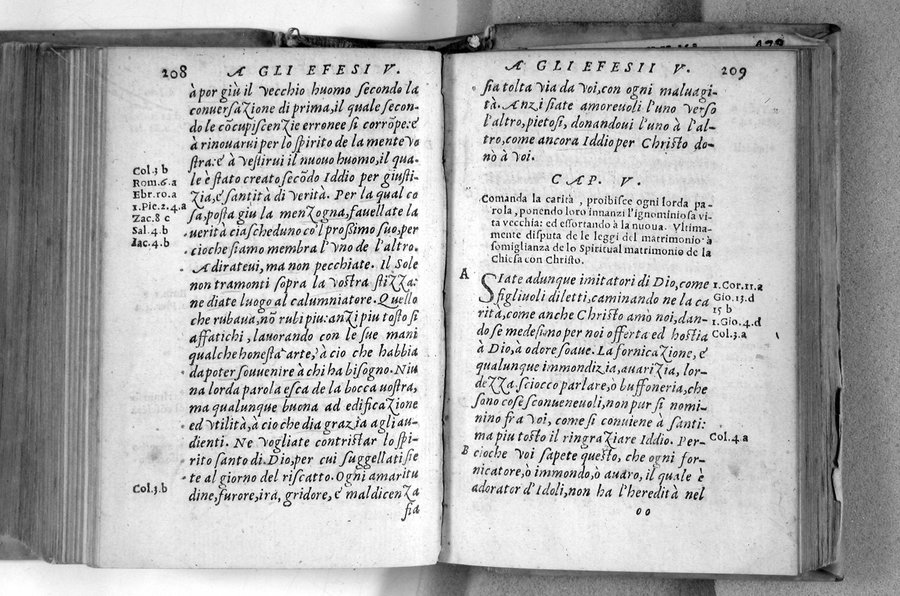 208 A GLI EFESI V.
à por giù il vecchio huomo secondo la
conversazione di prima, il quale secon-
do le cōcupiscenzie erronee si corrōpe: e'
à rinouarui per lo spirito de la mente vo
stra: e' à vestirui il nuouo huomo, il qua-
le è stato creato secōdo Iddio per giusti-
zia, e' santità di verità. Per la qual co
sa, posta giu la menzogna, fauellate la
uerità ciascheduno co'l proßimo suo, per
cioche siamo membra l'vno de l'altro.
Adirateui, ma non pecchiate. Il Sole
non tramonti sopra la vostra stizza:
ne diate luogo al calumniatore. Quello
che rubaua, nō rubi piu: anzi piu tosto si
affatichi, lavorando con le sue mani
qualche honesta arte, à cio che habbia
da poter souuenire à chi ha bisogno. Niu
na lorda parola esca de la bocca uostra,
ma qualunque buona ad edificazione
ed vtilità, à cio che dia grazia agli au-
dienti. Ne vogliate contristar lo spi-
rito santo di Dio, per cui suggellati sie
te al giorno del riscatto. Ogni amaritu
dine, furore, ira, gridore, e' maldicenza
sia
Col.3 b
Rom.6.a
Ebr.10.a
1.Pie.2.4.a
Zac.8 c
Sal.4.b
Iac.4.b
Col.3.b
A GLI EFESII V. 209
sia tolta via da voi, con ogni maluagi-
tà. Anzi siate amorevoli l'uno verso
l'altro, pietosi, donandoui l'uno à l'al-
tro, come ancora Iddio per Christo do-
nò à voi.
CAP. V.
Comanda la carità, proibisce ogni lorda pa
rola, ponendo loro innanzi l'ignominiosa vi
ta vecchia: ed essortando à la nuoua. Vltima-
mente disputa de le leggi del matrimonio à
somiglianza de lo Spiritual matrimonio de la
Chiesa con Christo.
A
SIate adunque imitatori di Dio, come
figliuoli diletti, caminando ne la ca
rità, come anche Christo amò noi, dan-
do se medesimo per noi offerta ed hostia
à Dio, à odore soaue. La fornicazione, e'
qualunque immondizia, auarizia, lor-
dezza, sciocco parlare, ò buffoneria, che
sono cose sconueneuoli, non pur si nomi-
nino fra voi, come si conuiene à santi:
ma piu tosto il ringraziare Iddio. Per-
B cioche voi sapete questo, che ogni for-
nicatore, ò immondo, ò auaro, il quale è
adorator d'Idoli, non ha l'heredità nel
oo
1.Cor.11.a
Gio.13.d
15 b
1.Gio.4.d
Col.3.a
Col.4.a